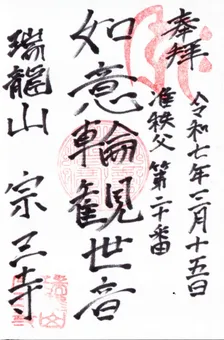 奉拝
令和七年二月十五日
准秩父 第二十番
如意輪観世音
瑞龍山 宗三寺